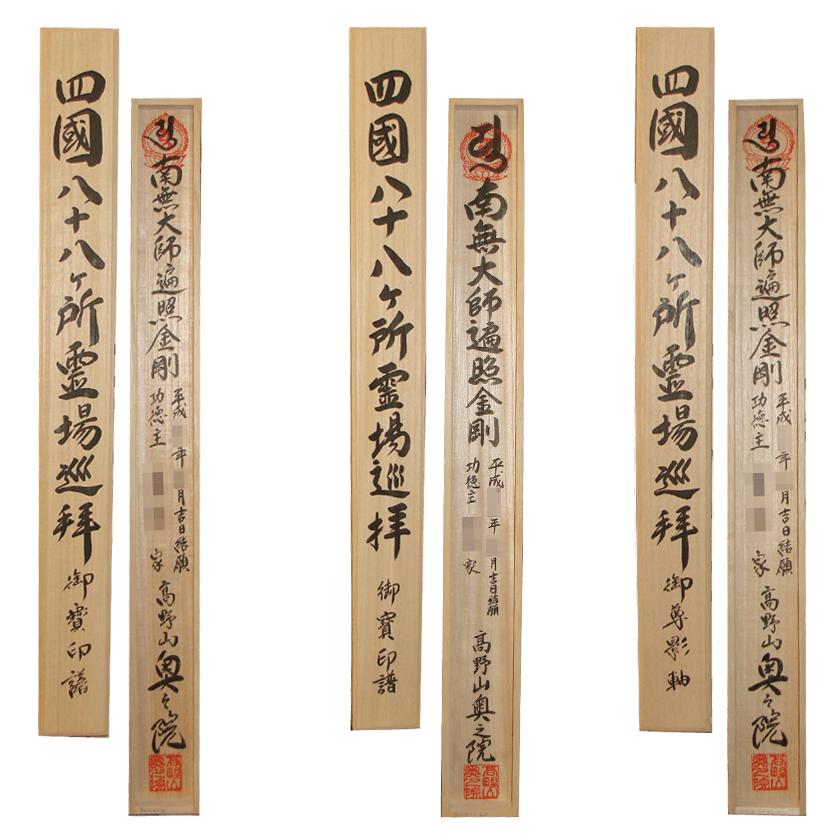 四國八十八ヶ所霊場巡拝 御寶印譜
南無大師遍照金剛
平成 年 月吉日結願
功徳主 家
高野山奥之院
四國八十八ヶ所霊場巡拝 御寶印譜
南無大師遍照金剛
平成 年 月吉日結願
功徳主 家
高野山奥之院
四國八十八ヶ所霊場巡拝 御尊影軸
南無大師遍照金剛
平成 年 月吉日結願
功徳主 家
高野山奥之院